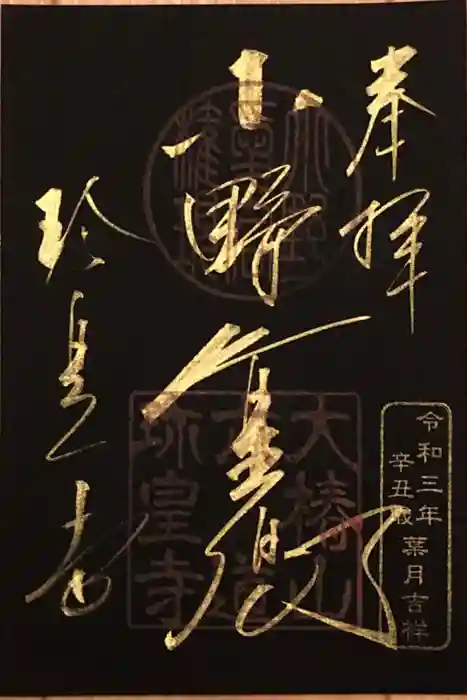 奉拝
小野篁卿
珍皇寺
大椿山
六道
珍皇寺
令和三年
辛丑歳
葉月吉祥